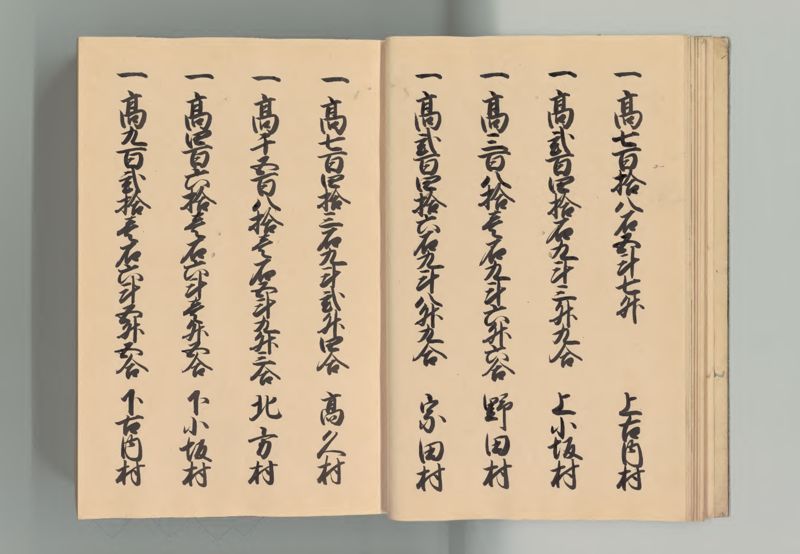 一 高七百拾八石五斗七升 上古内村
一 高貳百四拾石九斗三升九合 上小坂村
一 高三百八拾壱石九斗六升六合 野田村
一 高貳百四拾六石九斗八升九合 家田村
一 高七百四拾三石九斗貳升四合 高久村
一 高千五百八拾壱石五斗九升三合 北方村
一 高四百六拾壱石六斗壱升五合 下小坂村
一 高九百貳拾壱石六斗五升五合 下古内村